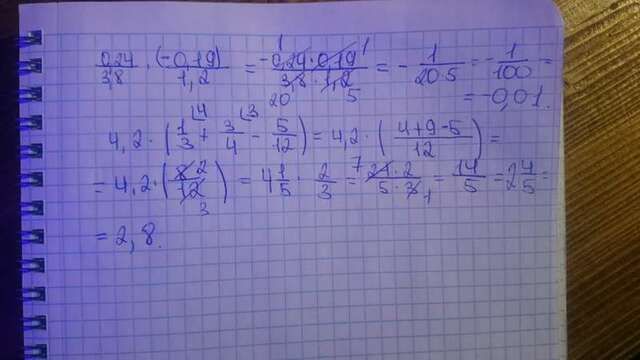 0,24/3,8 · (-0,19)/1,2 = -0,24·0,19/3,8·1,2 = -1/20·5 = -1/100 =
= -0,01.
4,2 · (1/3 + 3/4 - 5/12) = 4,2 · (4+9-5/12) =
= 4,2 · (8/12) = 4 1/5 · 2/3 = 21·2/5·3 = 14/5 = 2 4/5 =
= 2,8.